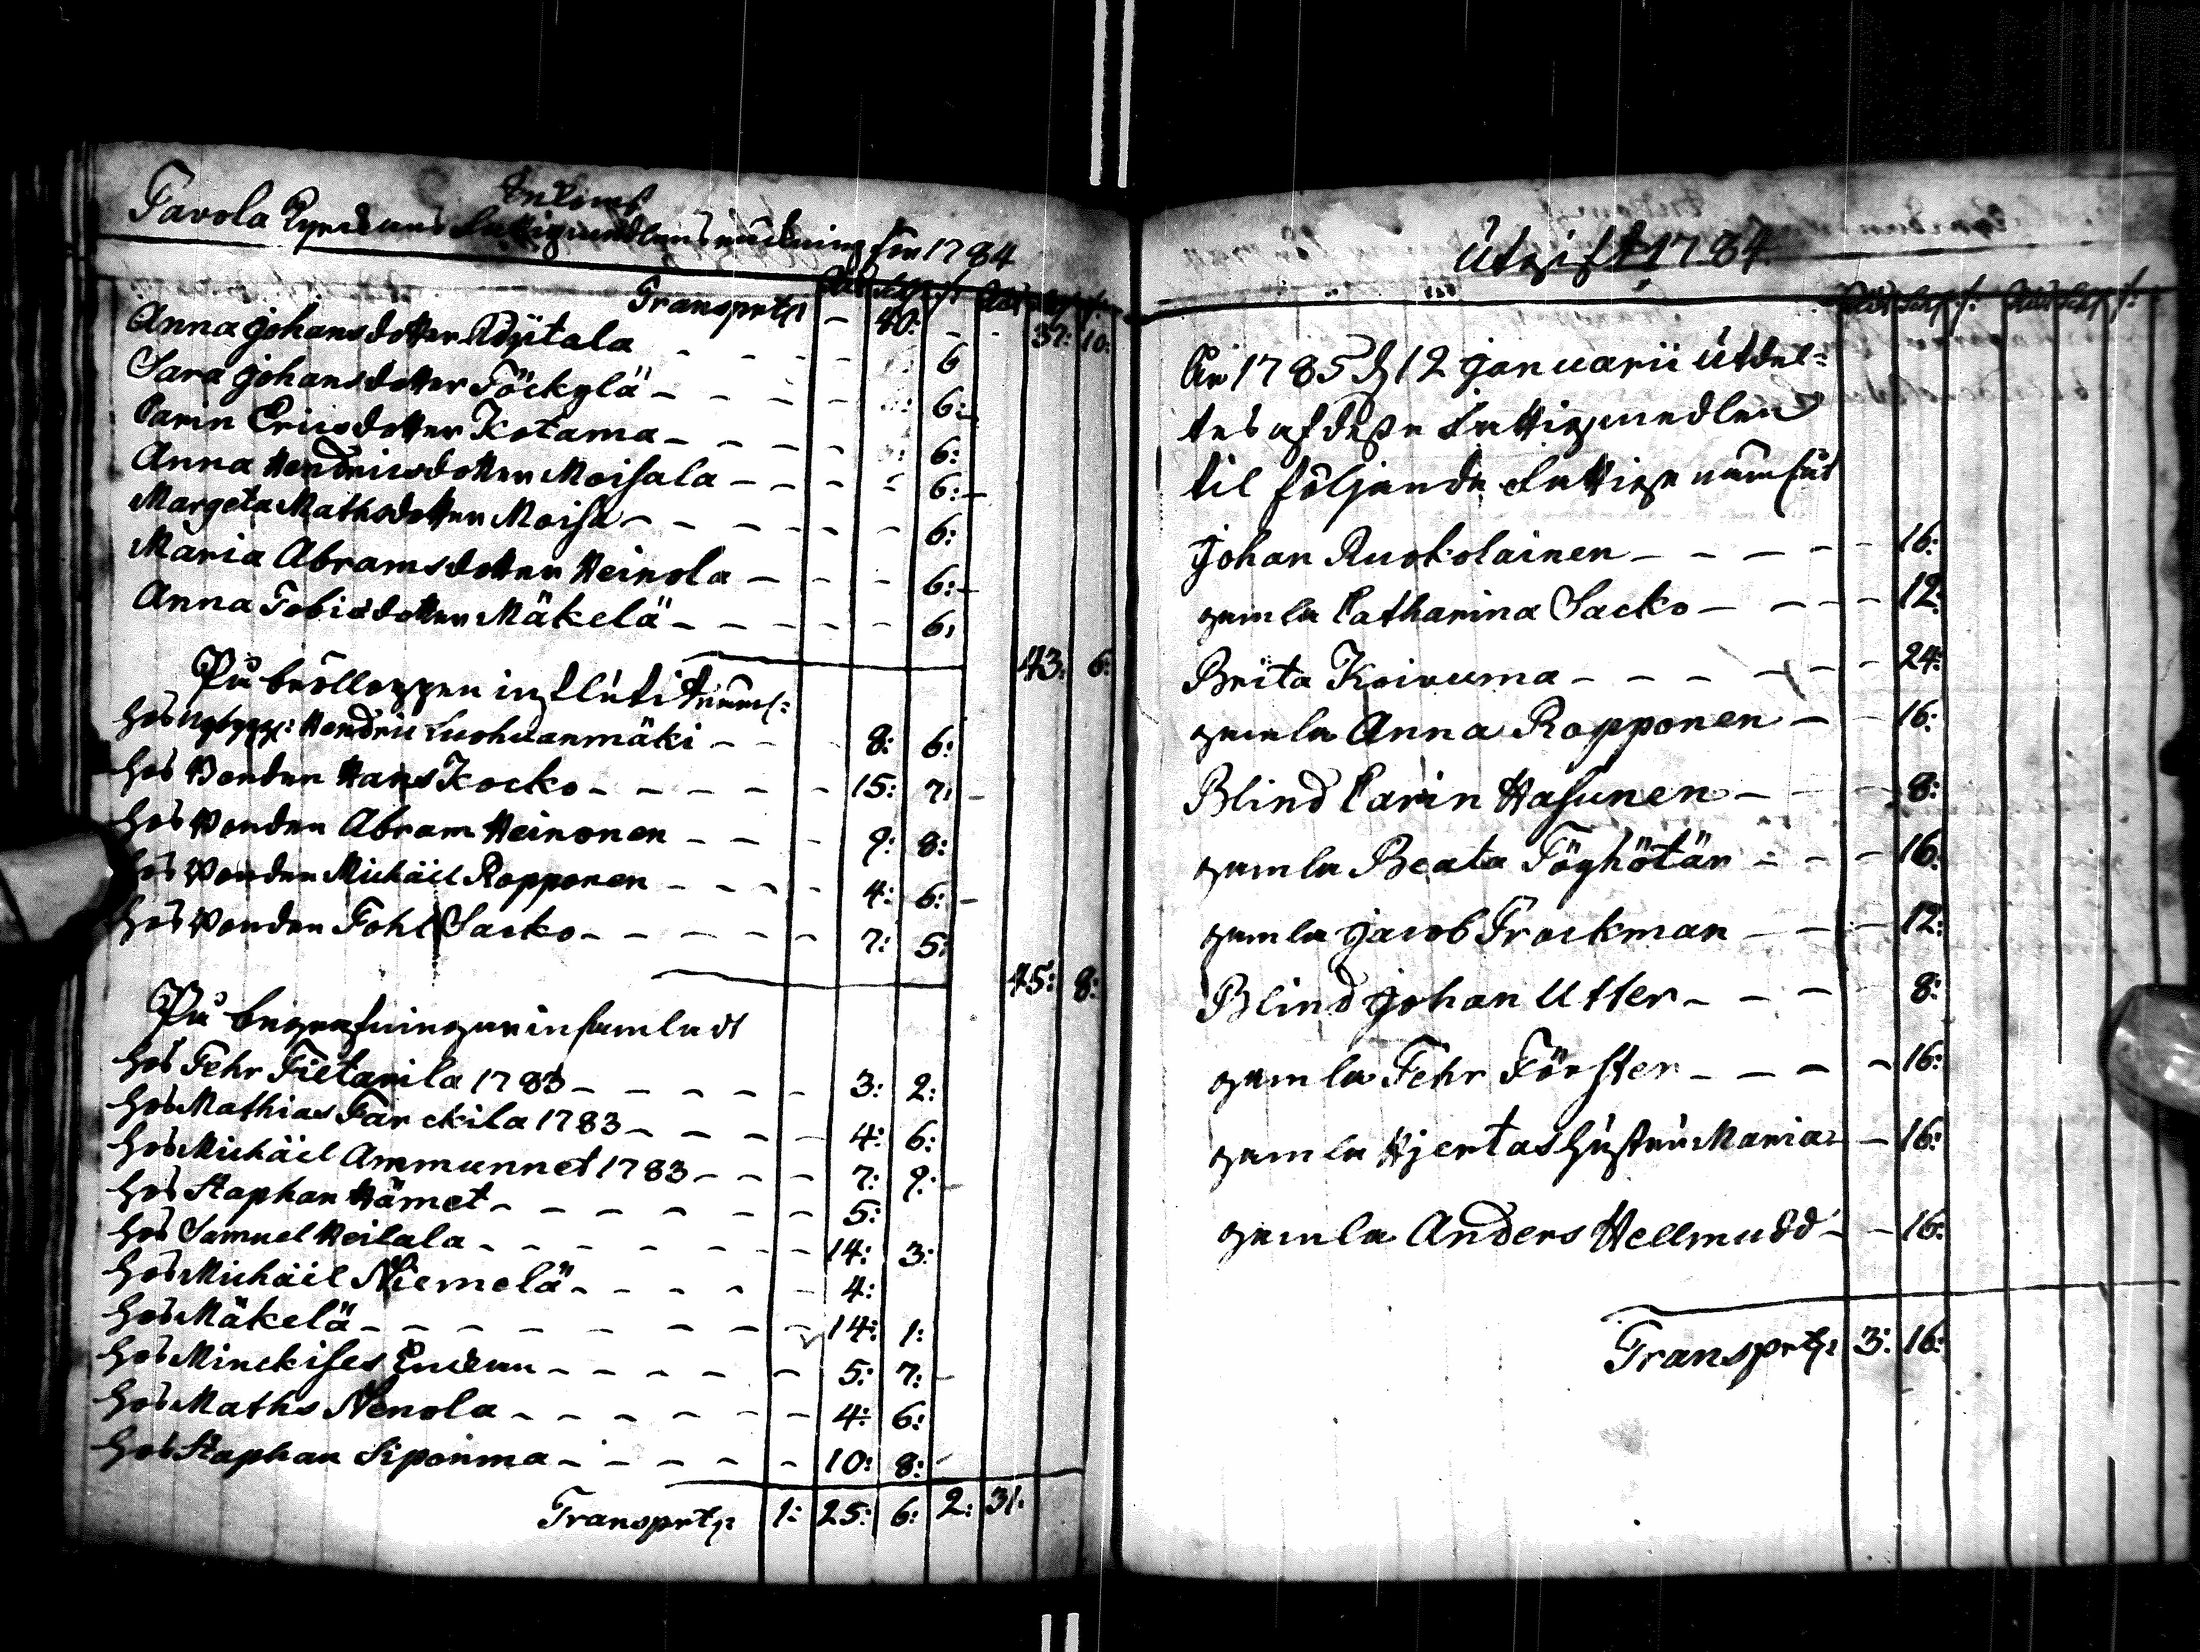 Inkomst
Tavola Kyrckans fattigmedlens räckning för 1784
Rdr ßk: r: Rdr ßk: r:
Transprt: – 40: – – 37: 10:
Anna Johansdotter Röÿtala – – – – 6
Sara Johansdotter Töckylä – – – – 6:
Carin Ericsdotter Kotama – – – – 6:
Anna Hendricsdotter Moisala – – – – 6:
Margeta Mathsdotter Moisa – – – – – 6:
Maria Abramsdotter Heinola – – – 6:
Anna Tobiædotter Mäkelä – – – – – 6,
43: 6:
På brölloppen influtit näml:
hos Hendric Luohuanmäki – – – 8: 6:
hos Bonden Hans Kocko – – – – – 15: 7:
hos Bonden Abram Heinonen – – – 9: 8:
hos Bonden Michäil Ropponen – – – – 4: 6:
hos Bonden Tohl Sacko – – – – – 7: 5:
45: 8:
På begrafningar insamladt
hos Pehr Pietarila 1783 – – – – – 3: 2:
hos Mathias Parckila 1783 – – – – – 4: 6:
hos Michäil Ammunnet 1783 – – – 7: 9:
hos Staphan Hämet – – – – – – 5:
hos Samuel Heilala – – – – – – 14: 3:
hos Michäil Niemelä – – – – – 4:
hos Mäkelä – – – – – – – – 14: 1:
hos Minckises Enckan – – – – – 5: 7:
hos Maths Nenola – – – – – – 4: 6:
hos Staphan Siponma – – – – – 10: 8:
Transprt: 1: 25: 6: 2: 31:
Utgift 1784
Rdr ßk: r: Rdr ßk: r:
År 1785 d 12 Januarii utdel-
tes af desse fattigmedlen
til följande fattige nämln
Johan Ruokolainen – – – – – 16:
gamla Catharina Sacko – – – – 12:
Brita Koivuma – – – – – – 24:
gamla Anna Ropponen – – 16:
Blind Carin Hasunen – – – 8:
gamla Beata Töghötär – – – 16:
gamla Jacob Brockman – – – 12:
Blind Johan Utter – – – 8:
gamla Pehr Förster – – – – 16:
gamla Hjertas hustru Maria – – 16:
gamla Anders Hellmudd – – 16:
Transprt: 3: 16: